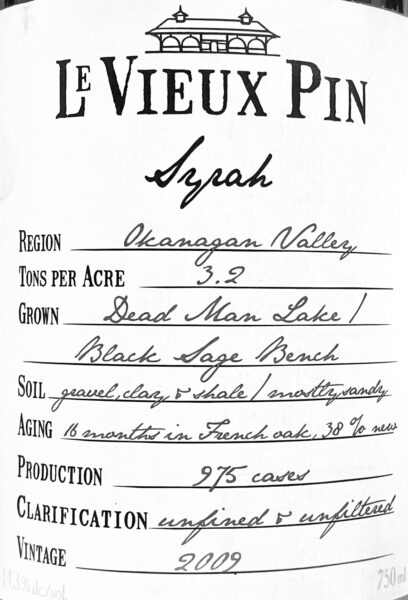 LE VIEUX PIN
Syrah
REGION Okanagan Valley
TONS PER ACRE 3.2
GROWN Dead Man Lake /
Black Sage Bench
SOIL gravel, clay & shale / mostly sandy
AGING 16 months in French oak, 38 % new
PRODUCTION 975 cases
CLARIFICATION unfined & unfiltered
VINTAGE 2009
14.3% alc/vol. 750 ml